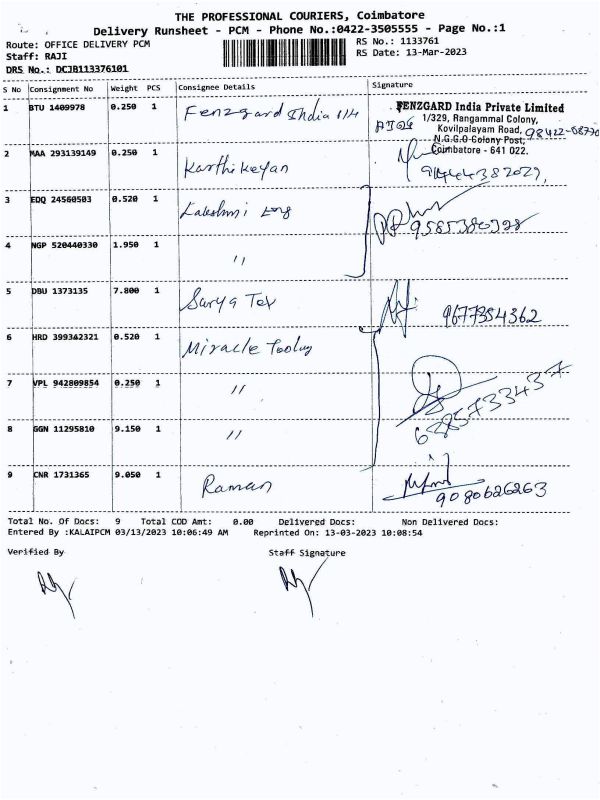 THE PROFESSIONAL COURIERS, Coimbatore
Delivery Runsheet - PCM - Phone No.:0422-3505555 - Page No.:1
Route: OFFICE DELIVERY PCM
Staff: RAJI
DRS No.: DCJB113376101
RS No.: 1133761
RS Date: 13-Mar-2023
S No Consignment No Weight PCS Consignee Details Signature
1 BTU 1409978 0.250 1 Fenzgard India
FENZGARD India Private Limited
1/329, Rangammal Colony,
Kovilpalayam Road,
N.G.G.O Colony Post,
Coimbatore - 641 022.
2 MAA 293139149 0.250 1 Karthikeyan
3 EDQ 24560503 0.520 1 Lakshmi Eng
4 NGP 520440330 1.950 1 "
5 DBU 1373135 7.800 1 Surya Tex 9677354362
6 HRD 399342321 0.520 1 Miracle Tooling
7 VPL 942809854 0.250 1 "
6385733437
8 GGN 11295810 9.150 1 "
9 CNR 1731365 9.050 1 Raman 9080626263
Total No. Of Docs: 9 Total COD Amt: 0.00 Delivered Docs: Non Delivered Docs:
Entered By :KALAIPCM 03/13/2023 10:06:49 AM Reprinted On: 13-03-2023 10:08:54
Verified By Staff Signature